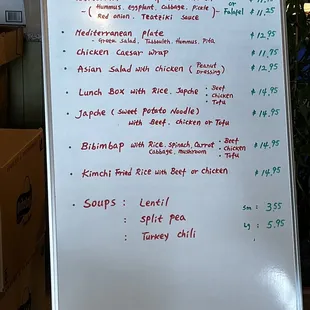 - ( Hummus, eggplant, cabbage, Pickle ) - or $ 11.25
Red onion, Teatziki sauce Falafel
• Mediterranean plate $ 12.95
- Green Salad, Tabbouleh, Hummus, Pita
• Chicken Caesar wrap $ 11.95
• Asian Salad with chicken ( Peanut Dressing ) $ 12.95
• Lunch Box with Rice, Japche : Beef $ 14.95
: Chicken
: Tofu
• Japche ( Sweet Potato Noodle ) $ 14.95
with Beef, chicken or Tofu
• Bibimbap with Rice, Spinach, Carrot : Beef $ 14.95
Cabbage, mushroom : Chicken
: Tofu
• Kimchi Fried Rice with Beef or chicken $ 14.95
• Soups : Lentil sm : 3.55
: split pea lg : 5.95
: Turkey chili